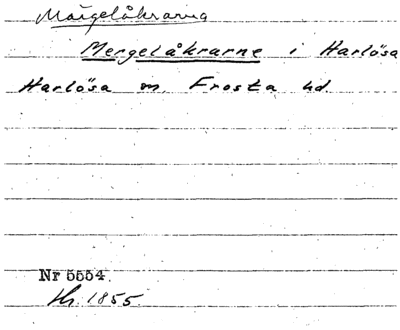 Märgelåkrarna
Mergelåkrarne i Harlösa
Harlösa sn Frosta hd.
Nr 5554.
Hr. 1855.